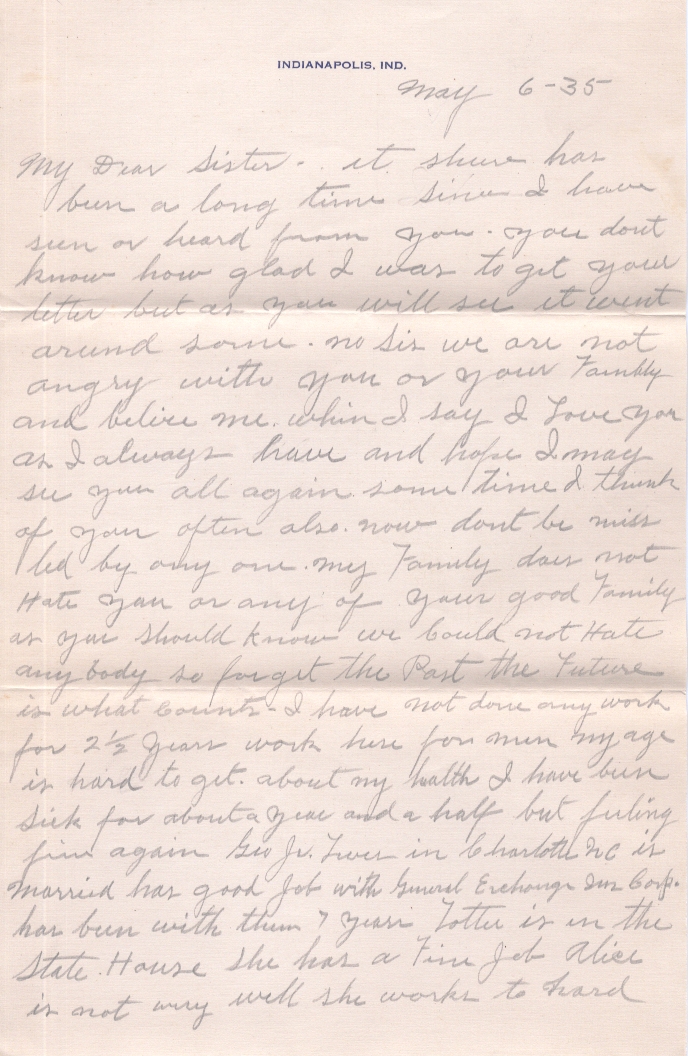 INDIANAPOLIS, IND.
May 6-35
My Dear Sister - it shure has
been a long time since I have
seen or heard from you. you dont
know how glad I was to get your
letter but as you will see it went
arund some. no Sis we are not
angry with you or your Fambly
and belive me. when I say I Love you
as I always have and hope I may
see you all again some time I think
of you often also. now dont be miss
led by any one. my Family does not
Hate you or any of your good Family
as you should know we Could not Hate
any body so forget the Past the Future
is what Counts - I have not done any work
for 2½ Years work here for men my age
is hard to get. about my health I have been
Sick for about a year and a half but feeling
fine again Geo Jr. Lives in Charlotte NC is
Married has good Job with General Exchange Ins Corp.
has been with them 7 years Tottie is in the
State House She has a Fine Job Alice
is not very well she works to hard